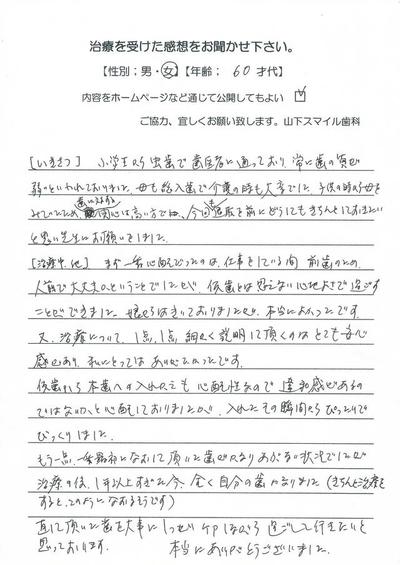 治療を受けた感想をお聞かせ下さい。
【性別；男・女】【年齢； 60 才代】
内容をホームページなど通じて公開してもよい ☑
ご協力、宜しくお願い致します。山下スマイル歯科
[いきさつ] 小学生から虫歯で歯医者に通っており、常に歯の質が
弱いといわれておりました。母も総入歯で介護の時も大変でした。子供の時から母を
みていたため、歯に対する関心は高い方では、今回も退職を前にどうしてもきちんとしておきたい
と思い先生にお願いをしました。
[治療中、他] まず一番心配だったのは、仕事をしている間 前歯のため、
人前で大丈夫かということでしたが、仮歯とは思えない心地よさで過ごす
ことができました。娘もおどろいておりましたが、本当によかったです。
又、治療について、1点、1点 細かく説明して頂くのはとても安心
感があり、私にとってはありがたかったです。
仮歯から本歯への入れかえも心配性なので違和感があるの
ではないかと心配しておりましたが、入れたその瞬間からぴったりで
びっくりしました。
もう一点、一番最初になおして頂いた歯がかなりあぶない状況でしたが
治療の後、1年以上すぎた今、全く自分の歯になりました（きちんと治療を
すると、このようになおるそうです）
直して頂いた歯を大事にしっかりケアしながら過ごして行きたいと
思っております。 本当にありがとうございました。